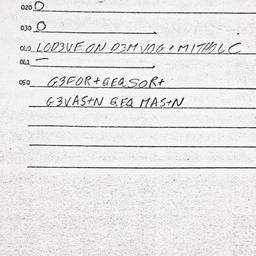 020 O
030 O
040 LOD3VEGN D3M VOG + MITHOLC
041 —
050 G3FOR + GEQ SOR+
G3VAS+N GEQ MAS+N